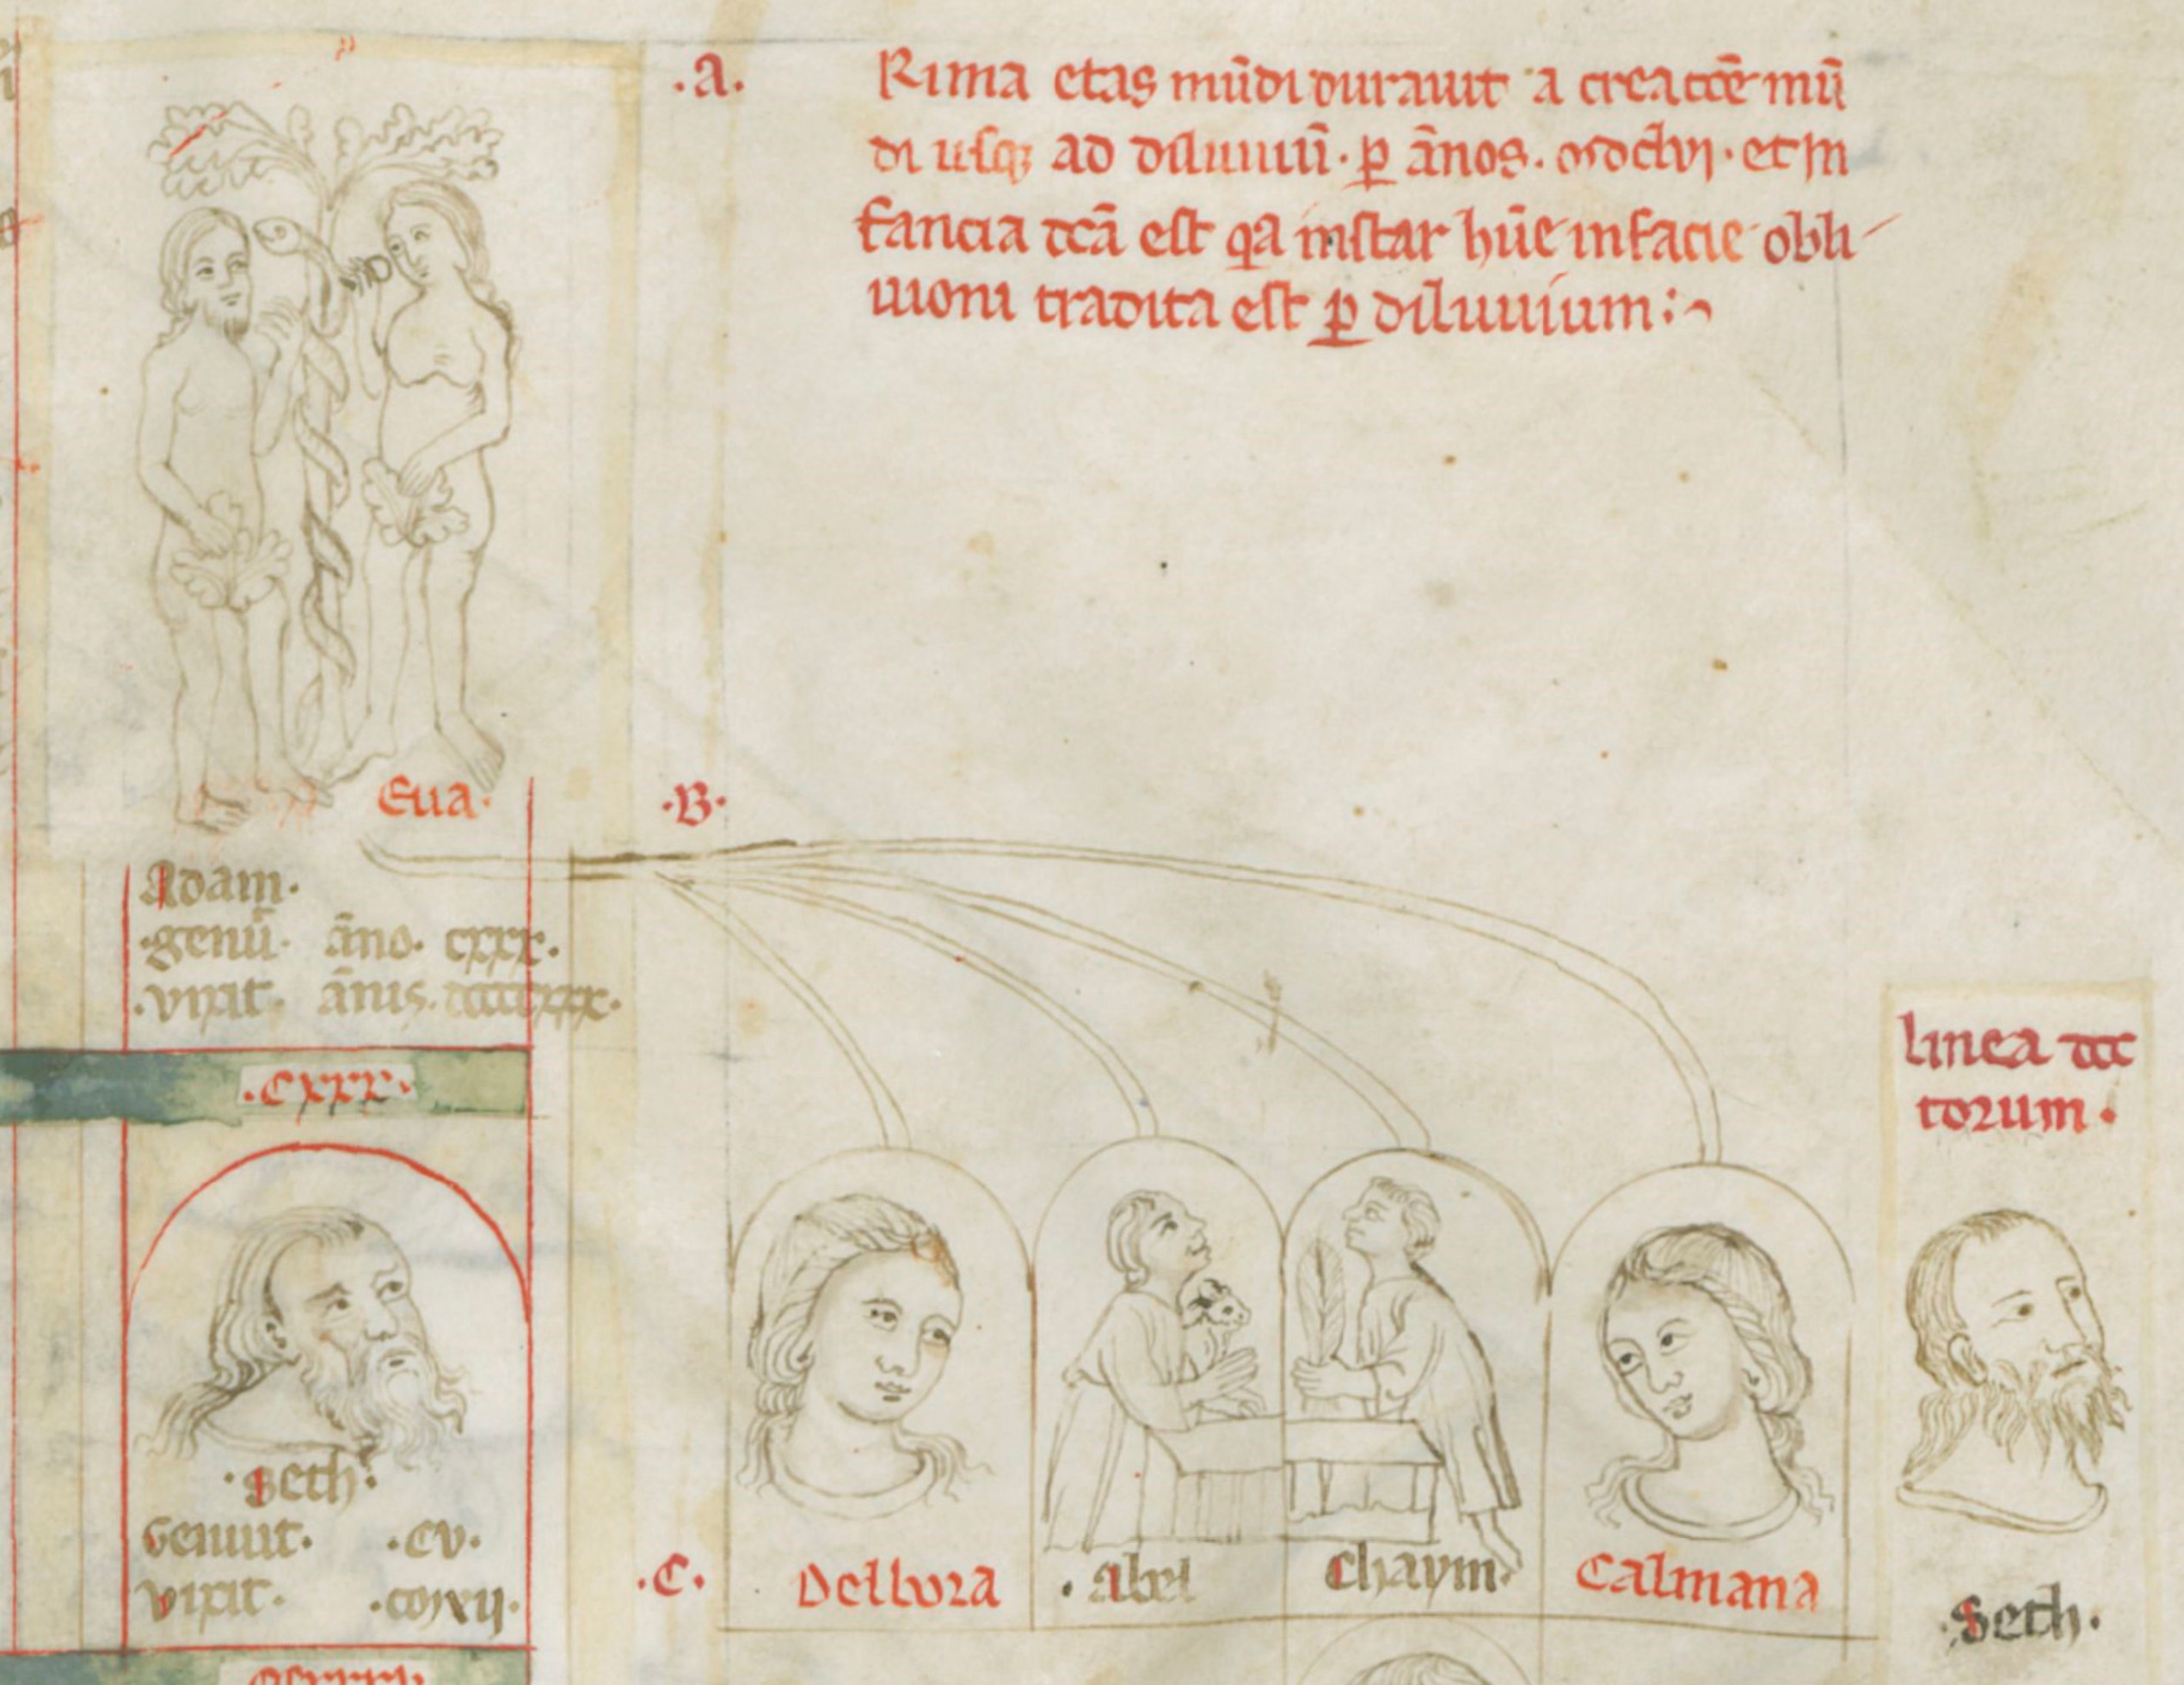 .a.
Rima etas mūdi durauit a creatōe mū
di usq; ad diluuiū. p ānos. mdclvj. et in
fancia dcā est qa instar hūe infacie obli
uioni tradita est p diluuium:
Eua.
.B.
Adam.
.genū. āno. cxxx.
.vixit. ānis. dccccxxx.
.cxxx.
linea doc
torum.
.seth.
Genuit. .cv.
vixit.
.C.
Delbora
.abel
Chaym.
Calmana
.Seth.